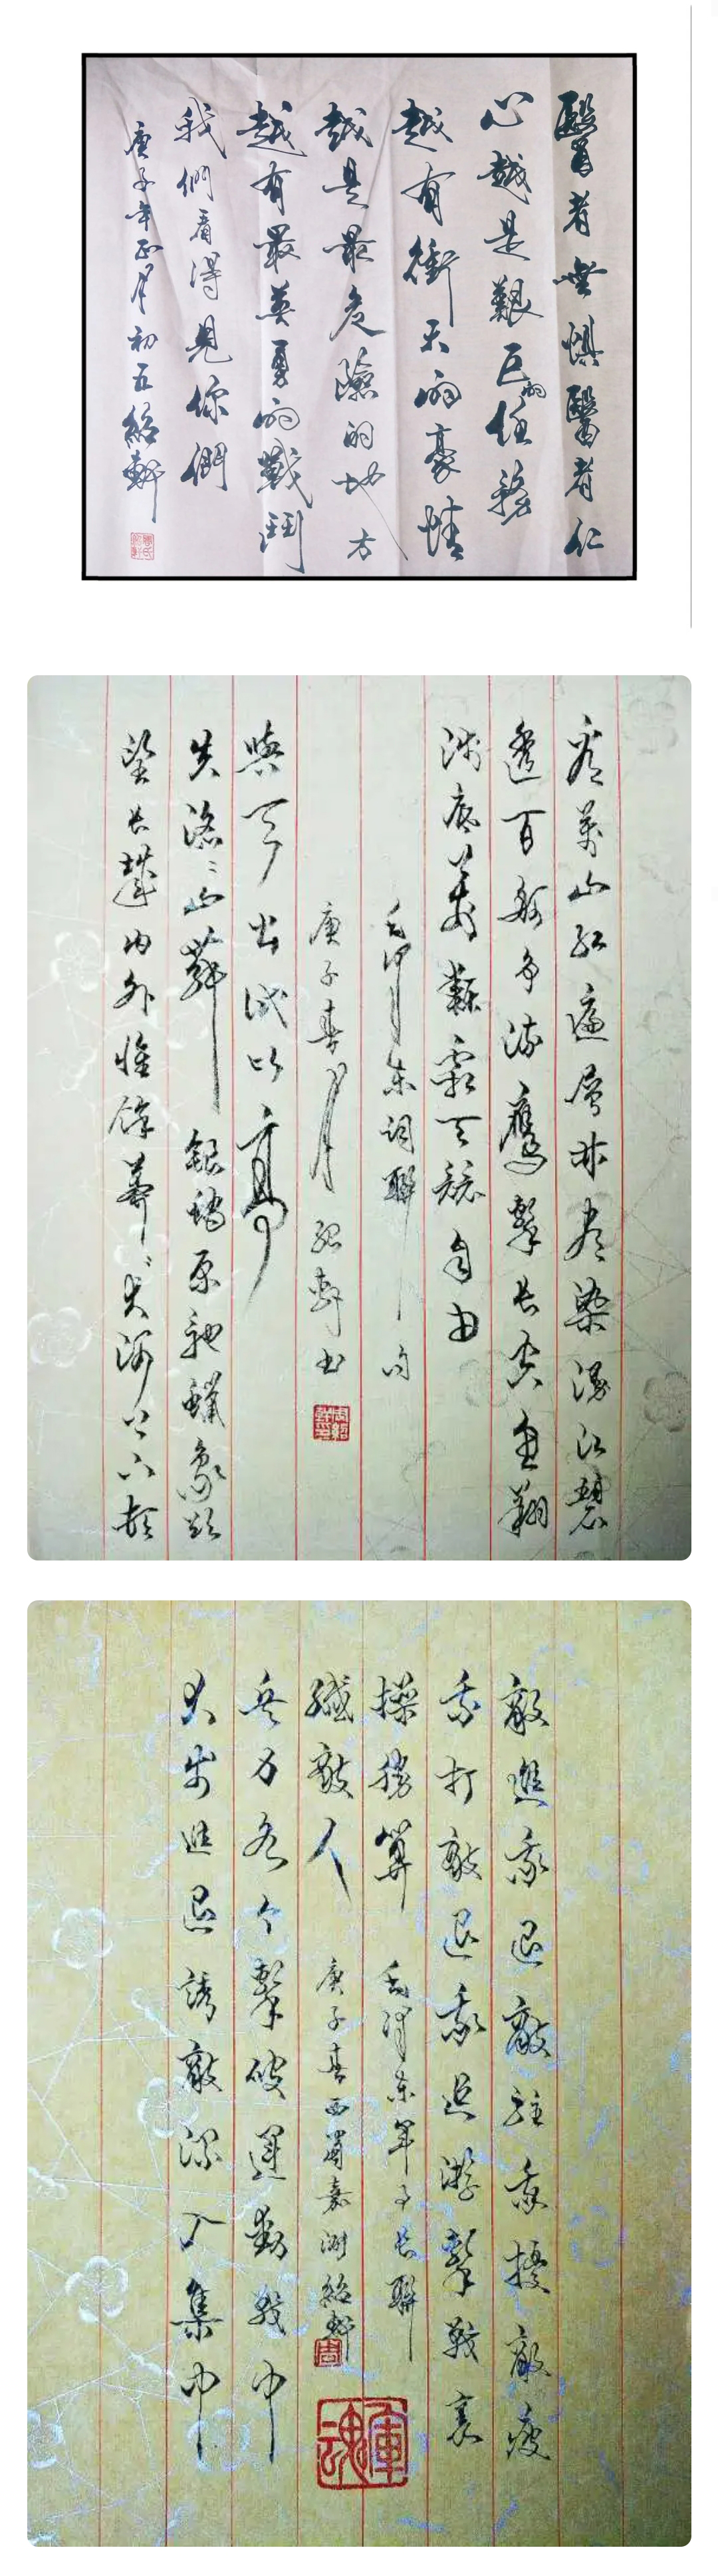 醫者無懼醫者仁
心越是艱巨的任務
越有衝天的豪情
越是最危險的地方
越有最英勇的戰鬥
我們看得見你們
庚子年正月初五紹軒
看萬山紅遍層林盡染漫江碧
透百舸爭流鷹擊長空魚翔
淺底萬類霜天競自由
毛澤東詞聯句
望長城內外惟餘莽〻大河上下頓
失滔〻山舞銀蛇原馳蠟象欲
與天公試比高
庚子春月紹軒書
敵進我退敵駐我擾敵疲
我打敵退我追游擊戰裏
操勝算
毛澤東軍事長聯
大步進退誘敵深入集中
兵力各个擊破運動戰中
殲敵人
庚子春西蜀嘉州紹軒
周
軍魂